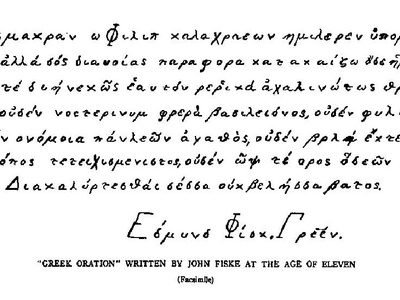 μακρὰν ω Φιλιπ καλαχρεων ημιλερεν ὑπορ
ἀλλά σὸς διανοίας παραφορα κατακαίζω
τέ δυήνεκῶς ἑαυτόν ἀχαλινώτως
οὐδέν νοστερινυμ φρερὰ βασιλειόνος, οὐδέν φυλ
ονόμοια πάνλεῶν ἀγαθὸς, οὐδέν βρλή ἐκτε
όπος τετειχισμενιστος, οὐδέν ὤψ τέ ορος ὅδεών
Διακαλύρτεσθάι σέσσα οὐκβελήσσα βατος.
Εδμυνδ Φίσκ. Γρεέν.
"GREEK ORATION" WRITTEN BY JOHN FISKE AT THE AGE OF ELEVEN
(Facsimile)